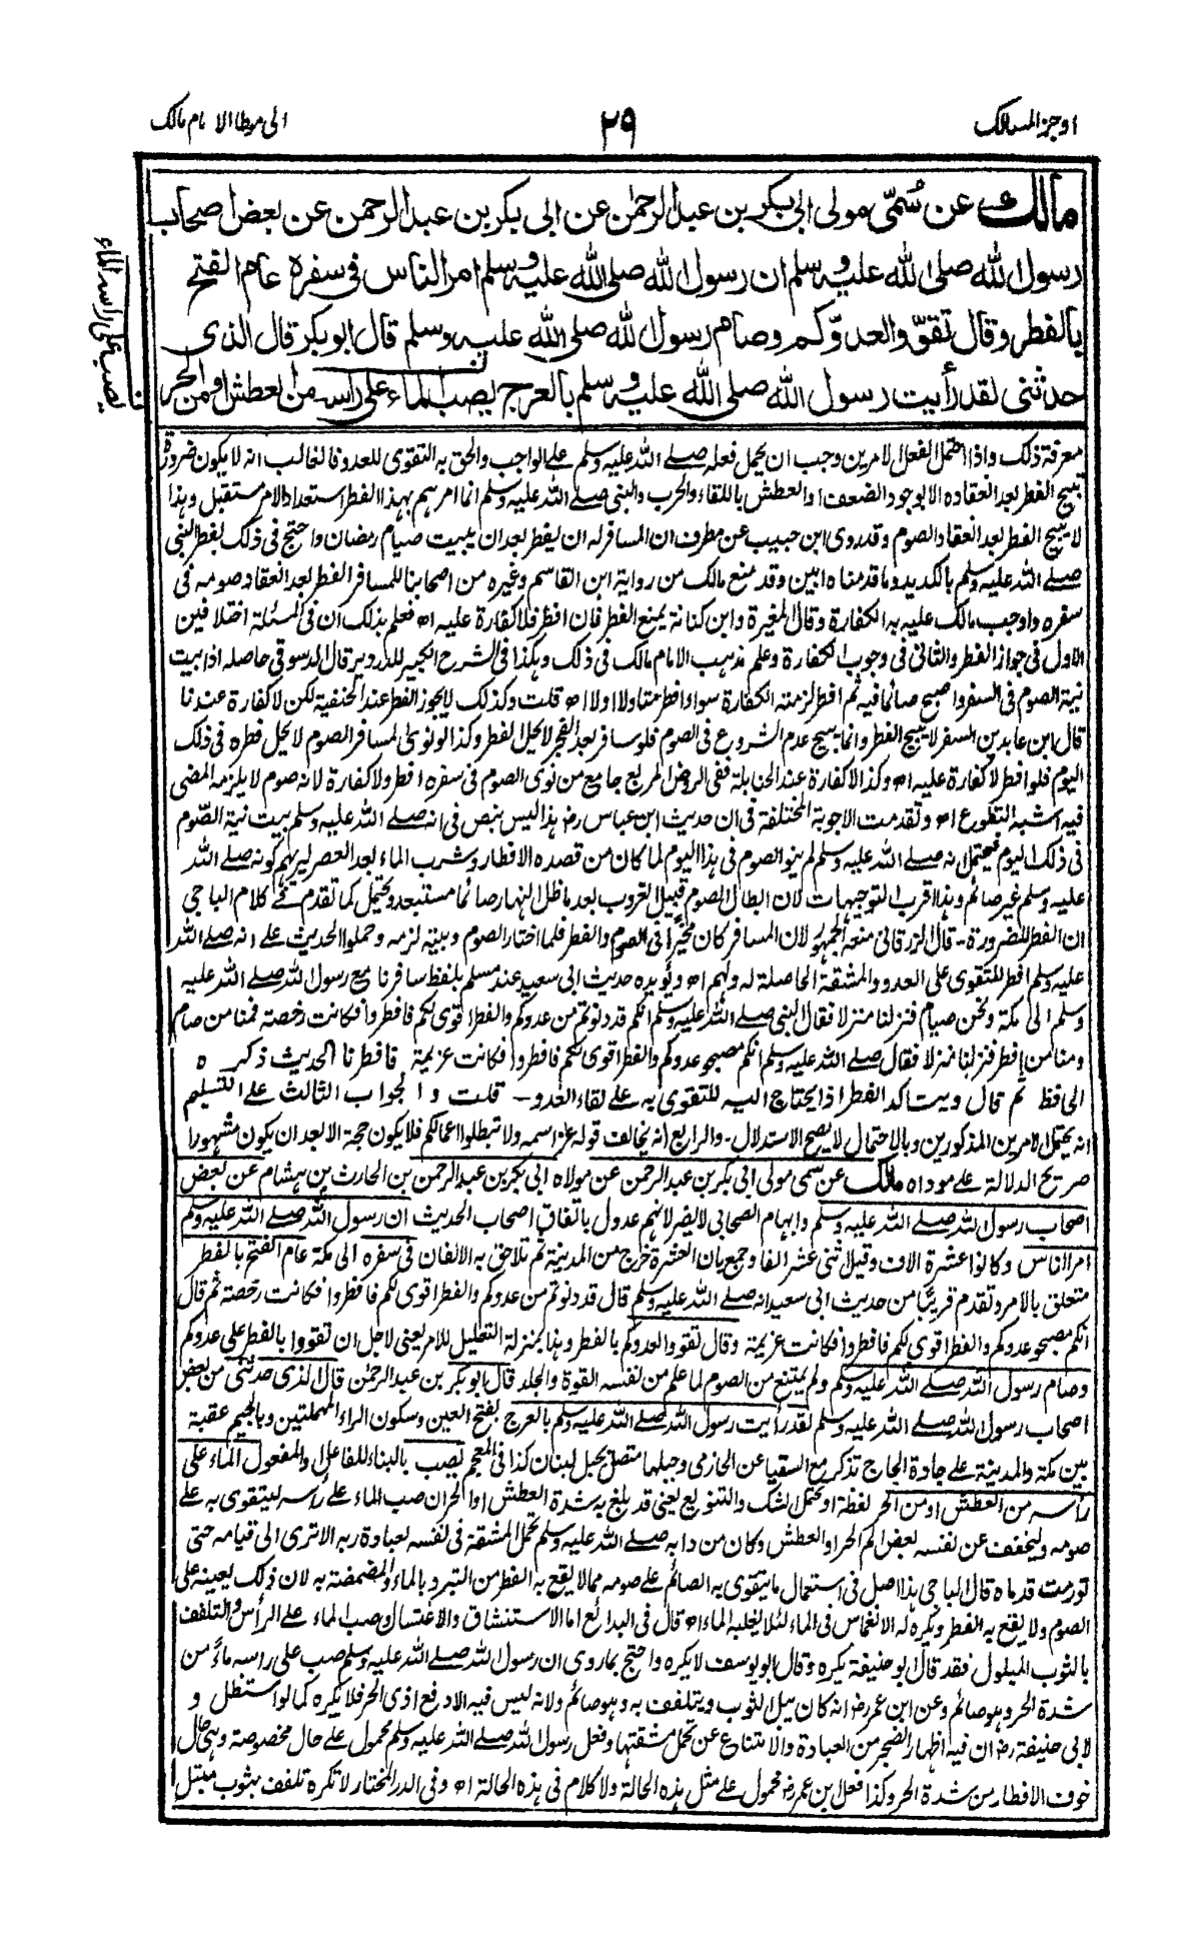 اوجز المسالك
٢٩
الى موطا الامام مالك
مالك عن سُمَىّ مولى ابى بكر بن عبد الرحمن عن ابى بكر بن عبد الرحمن عن بعض اصحاب
رسول الله صلى الله عليه وسلم ان رسول الله صلى الله عليه وسلم امر الناس فى سفره عام الفتح
بالفطر وقال تقوّوا لعدوّكم وصام رسول الله صلى الله عليه وسلم قال ابو بكر قال الذى
حدثنى لقد رأيت رسول الله صلى الله عليه وسلم بالعرج يصب الماء على راسه من العطش او من الحر
يصب على راسه الماء
معرفة ذلك واذا احتمل الفعل لامرين وجب ان يحمل فعله صلے الله عليه وسلم على الواجب والحق به التقوى للعدو فالغالب انه لا يكون ضرورة
تبيح الفطر بعد انعقاده الا بوجود الضعف او العطش باللقاء والحرب والنبى صلے الله عليه وسلم انما امرهم بهذا الفطر استعدادا لامر مستقبل وهذا
لا يبيح الفطر بعد انعقاد الصوم وقد روى ابن حبيب عن مطرف ان المسافر له ان يفطر بعد ان يبيت صيام رمضان واحتج فى ذلك بفطر النبى
صلے الله عليه وسلم بالكديد وما قدمناه ابين وقد منع مالك من رواية ابن القاسم وغيره من اصحابنا للمسافر الفطر بعد انعقاد صومه فى
سفره واوجب مالك عليه به الكفارة وقال المغيرة وابن كنانة يمنع الفطر فان افطر فلا كفارة عليه اه فعلم بذلك ان فى المسئلة اختلافين
الاول فى جواز الفطر والثانى فى وجوب الكفارة وعلم مذهب الامام مالك فى ذلك وهكذا فى الشرح الكبير للدردير قال الدسوقى حاصله اذا بيت
نية الصوم فى السفر واصبح صائما فيه ثم افطر لزمته الكفارة سواء افطر متاولا او لا اه قلت وكذلك لا يجوز الفطر عند الحنفية لكن لا كفارة عندنا
قال ابن عابدين السفر لا يبيح الفطر وانما يبيح عدم الشروع فى الصوم فلو سافر بعد الفجر لا يحل الفطر وكذا لو نوى المسافر الصوم لا يحل فطره فى ذلك
اليوم فلو افطر لا كفارة عليه اه وكذا لا كفارة عند الحنابلة ففى الروض المربع جامع من نوى الصوم فى سفره افطر ولا كفارة لانه صوم لا يلزمه المضى
فيه اشبه التطوع اه وتقدمت الاجوبة المختلفة فى ان حديث ابن عباس رض هذا ليس بنص فى انه صلے الله عليه وسلم بيت نية الصوم
فى ذلك اليوم فيحتمل انه صلے الله عليه وسلم لم ينو الصوم فى هذا اليوم لما كان من قصده الافطار وشرب الماء بعد العصر ليريهم كونه صلے الله
عليه وسلم غير صائم وهذا اقرب التوجيهات لان ابطال الصوم قبيل الغروب بعد ما ظل النهار صائما مستبعد ويحتمل كما تقدم فى كلام الباجى
ان الفطر للضرورة - قال الزرقانى منعه الجمهور لان المسافر كان مخيرا فى الصوم والفطر فلما اختار الصوم وبيته لزمه وحملوا الحديث على انه صلے الله
عليه وسلم افطر للتقوى على العدو والمشقة الحاصلة له ولهم اه ويؤيده حديث ابى سعيد عند مسلم بلفظ سافرنا مع رسول الله صلے الله عليه
وسلم الى مكة ونحن صيام فنزلنا منزلا فقال النبى صلے الله عليه وسلم انكم قد دنوتم من عدوكم والفطر اقوى لكم فافطروا فكانت رخصة فمنا من صام
ومنا من افطر فنزلنا منزلا فقال صلے الله عليه وسلم انكم مصبحو عدوكم والفطر اقوى لكم فافطروا فكانت عزيمة فافطرنا الحديث ذكره
الحافظ ثم قال ويتاكد الفطر اذا يحتاج اليه للتقوى به على لقاء العدو - قلت والجواب الثالث على التسليم
انه يحتمل الامرين المذكورين وبالاحتمال لا يصح الاستدلال - والرابع انه يخالف قوله عز اسمه ولا تبطلوا اعمالكم فلا يكون حجة الا بعد ان يكون مشهورا
صريح الدلالة على موداه مالك عن سمى مولى ابى بكر بن عبد الرحمن عن مولاه ابى بكر بن عبد الرحمن بن الحارث بن هشام عن بعض
اصحاب رسول الله صلے الله عليه وسلم وابهام الصحابى لا يضر لانهم عدول باتفاق اصحاب الحديث ان رسول الله صلے الله عليه وسلم
امر الناس وكانوا عشرة الاف وقيل اثنى عشر الفا وجمع بان العشرة خرج من المدينة ثم تلاحق به الالفان فى سفره الى مكة عام الفتح بالفطر
متعلق بالامر وتقدم قريبًا من حديث ابى سعيد انه صلے الله عليه وسلم قال قد دنوتم من عدوكم والفطر اقوى لكم فافطروا فكانت رخصة ثم قال
انكم مصبحو عدوكم والفطر اقوى لكم فافطروا فكانت عزيمة وقال تقووا لعدوكم بالفطر وهذا بمنزلة التعليل للامر يعنى لاجل ان تقووا بالفطر على عدوكم
وصام رسول الله صلے الله عليه وسلم ولم يمتنع من الصوم لما علم من نفسه القوة والجلد قال ابو بكر بن عبد الرحمن قال الذى حدثنى من بعض
اصحاب رسول الله صلے الله عليه وسلم لقد رأيت رسول الله صلے الله عليه وسلم بالعرج بفتح العين وسكون الراء المهملتين وبالجيم عقبة
بين مكة والمدينة على جادة الحاج تذكر مع السقيا عن الحازمى وجبلها متصل بجبل لبنان كذا فى المعجم يصب بالبناء للفاعل والمفعول الماء على
رأسه من العطش او من الحر لفظة او تحتمل الشك والتنويع يعنى قد بلغ به شدة العطش او الحر ان صب الماء على رأسه ليتقوى به على
صومه وليخفف عن نفسه بعض الم الحر او العطش وكان من دابه صلے الله عليه وسلم تحمل المشقة فى نفسه لعبادة ربه الا ترى الى قيامه حتى
تورمت قدماه قال الباجى هذا اصل فى استعمال ما يتقوى به الصائم على صومه مما لا يقع به الفطر من التبرد بالماء والمضمضة به لان ذلك يعينه على
الصوم ولا يقع به الفطر ويكره له الانغماس فى الماء لئلا يغلبه الماء اه قال فى البدائع اما الاستنشاق والاغتسال وصب الماء على الرأس والتلفف
بالثوب المبلول فقد قال ابو حنيفة يكره وقال ابو يوسف لا يكره واحتج بما روى ان رسول الله صلے الله عليه وسلم صب على راسه ماءً من
شدة الحر وهو صائم وعن ابن عمر رض انه كان يبل الثوب ويتلفف به وهو صائم ولانه ليس فيه الا دفع اذى الحر فلا يكره كما لو استظل و
لابى حنيفة رض ان فيه اظهار الضجر من العبادة والامتناع عن تحمل مشقتها وفعل رسول الله صلے الله عليه وسلم محمول على حال مخصوصة وهى حال
خوف الافطار من شدة الحر وكذا فعل ابن عمر رض محمول على مثل هذه الحالة ولا كلام فى هذه الحالة اه وفى الدر المختار لا تكره تلفف بثوب مبتل